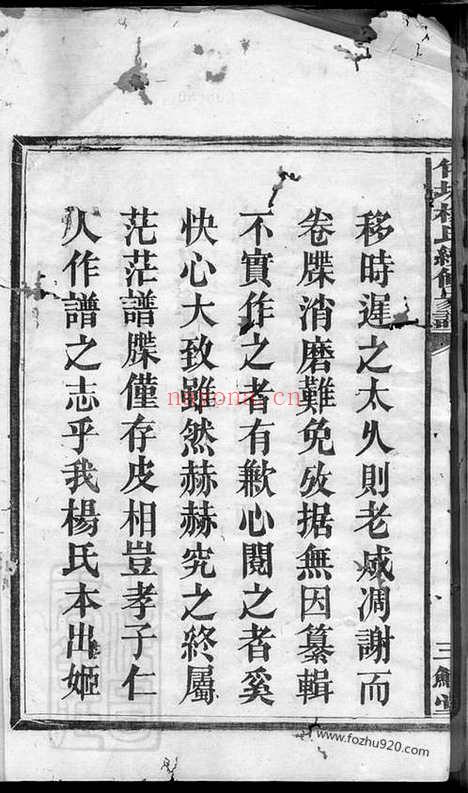 移時遲之太久則老成凋謝而
卷牒消磨難免攷据無因纂輯
不實作之者有歉心閱之者奚
快心大致雖然赫赫究之終屬
茫茫譜牒僅存皮相豈孝子仁
人作譜之志乎我楊氏本出姬
三鱣堂
www.fozhu920.com